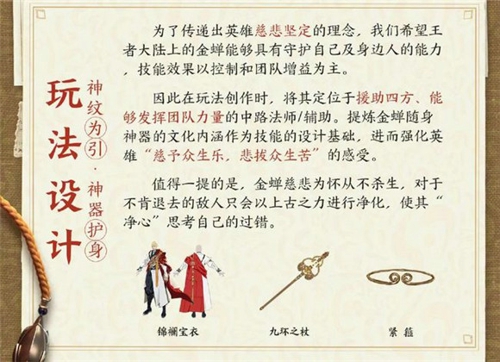 玩法设计
神纹为引·神器护身
为了传递出英雄慈悲坚定的理念，我们希望王
者大陆上的金蝉能够具有守护自己及身边人的能力
，技能效果以控制和团队增益为主。
因此在玩法创作时，将其定位于援助四方、能
够发挥团队力量的中路法师/辅助。提炼金蝉随身
神器的文化内涵作为技能的设计基础，进而强化英
雄“慈予众生乐，悲拔众生苦”的感受。
值得一提的是，金蝉慈悲为怀从不杀生，对于
不肯退去的敌人只会以上古之力进行净化，使其“
净心”思考自己的过错。
锦襕宝衣
九环之杖
紧箍